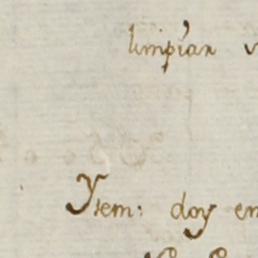 limpian
Ytem: doy en